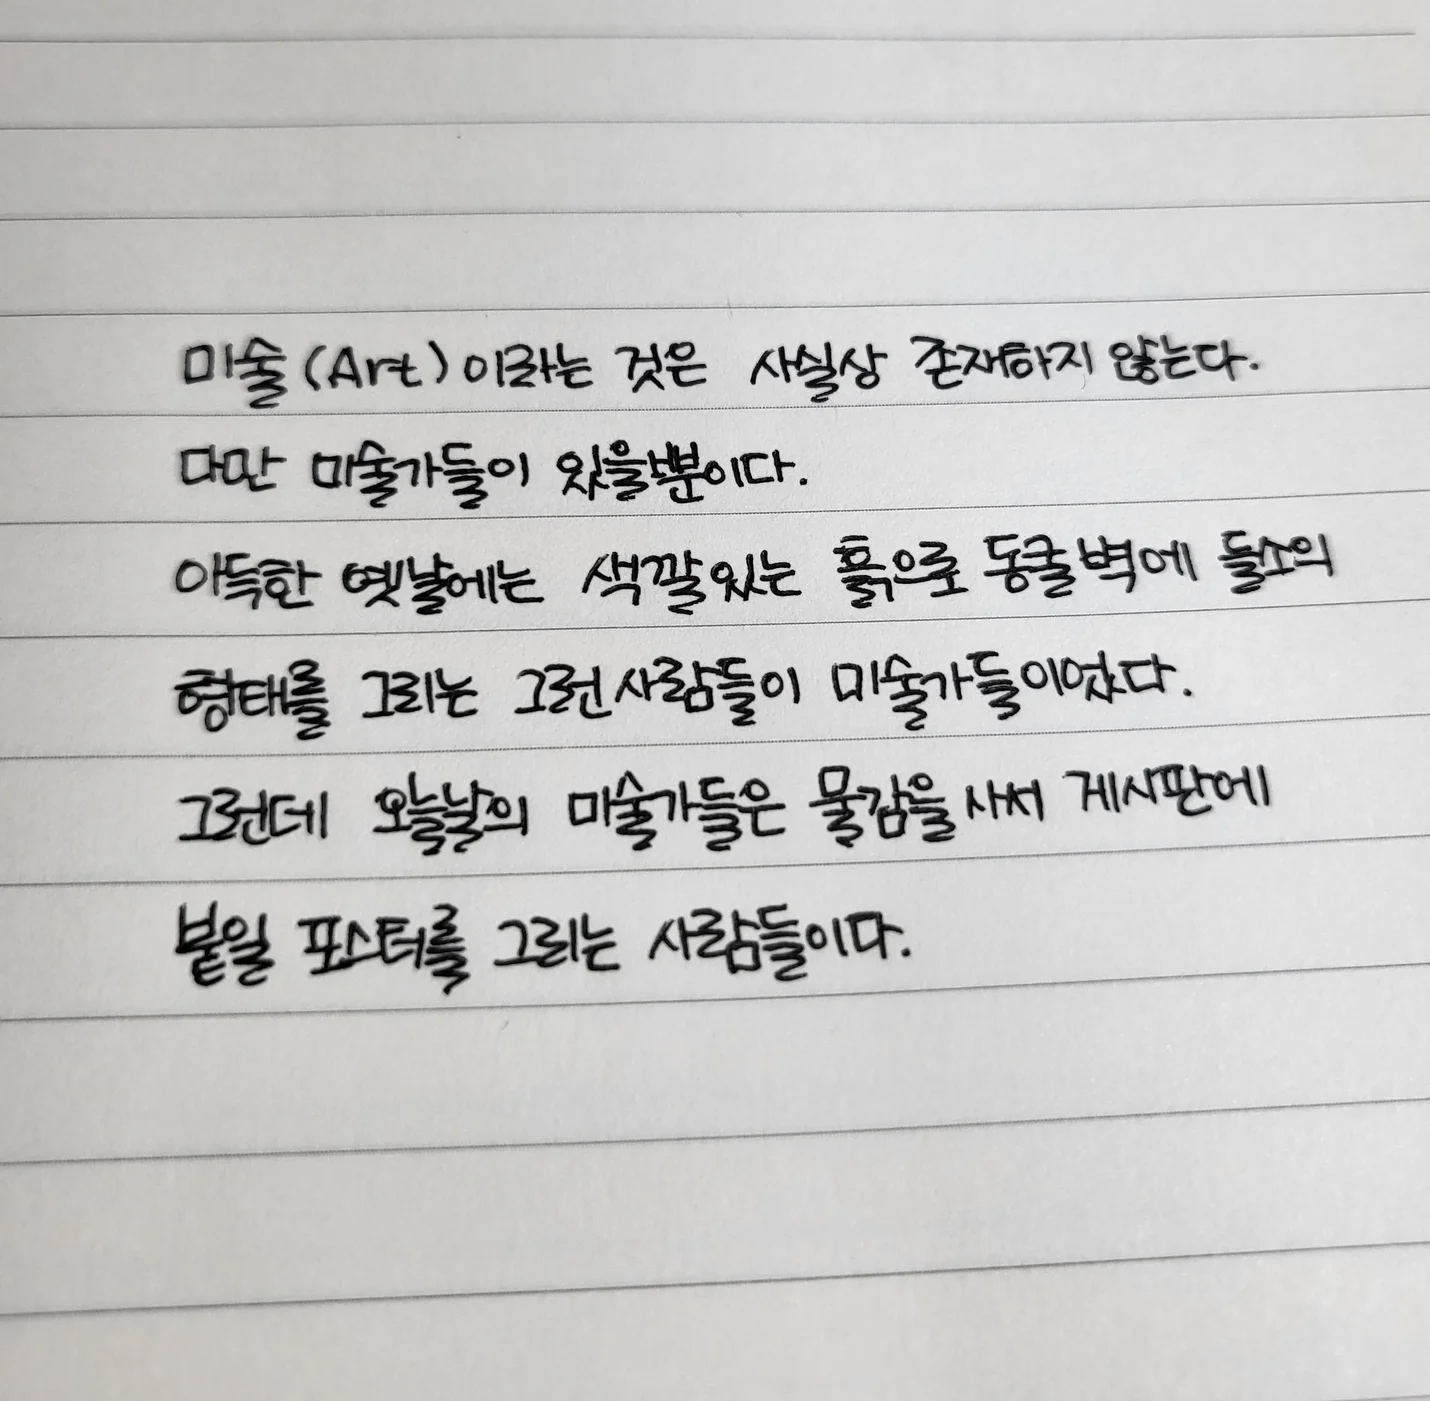 미술(Art)이라는 것은 사실상 존재하지 않는다.
다만 미술가들이 있을뿐이다.
아득한 옛날에는 색깔있는 흙으로 동굴벽에 들소의
형태를 그리는 그런사람들이 미술가들이었다.
그런데 오늘날의 미술가들은 물감을 사서 게시판에
붙일 포스터를 그리는 사람들이다.